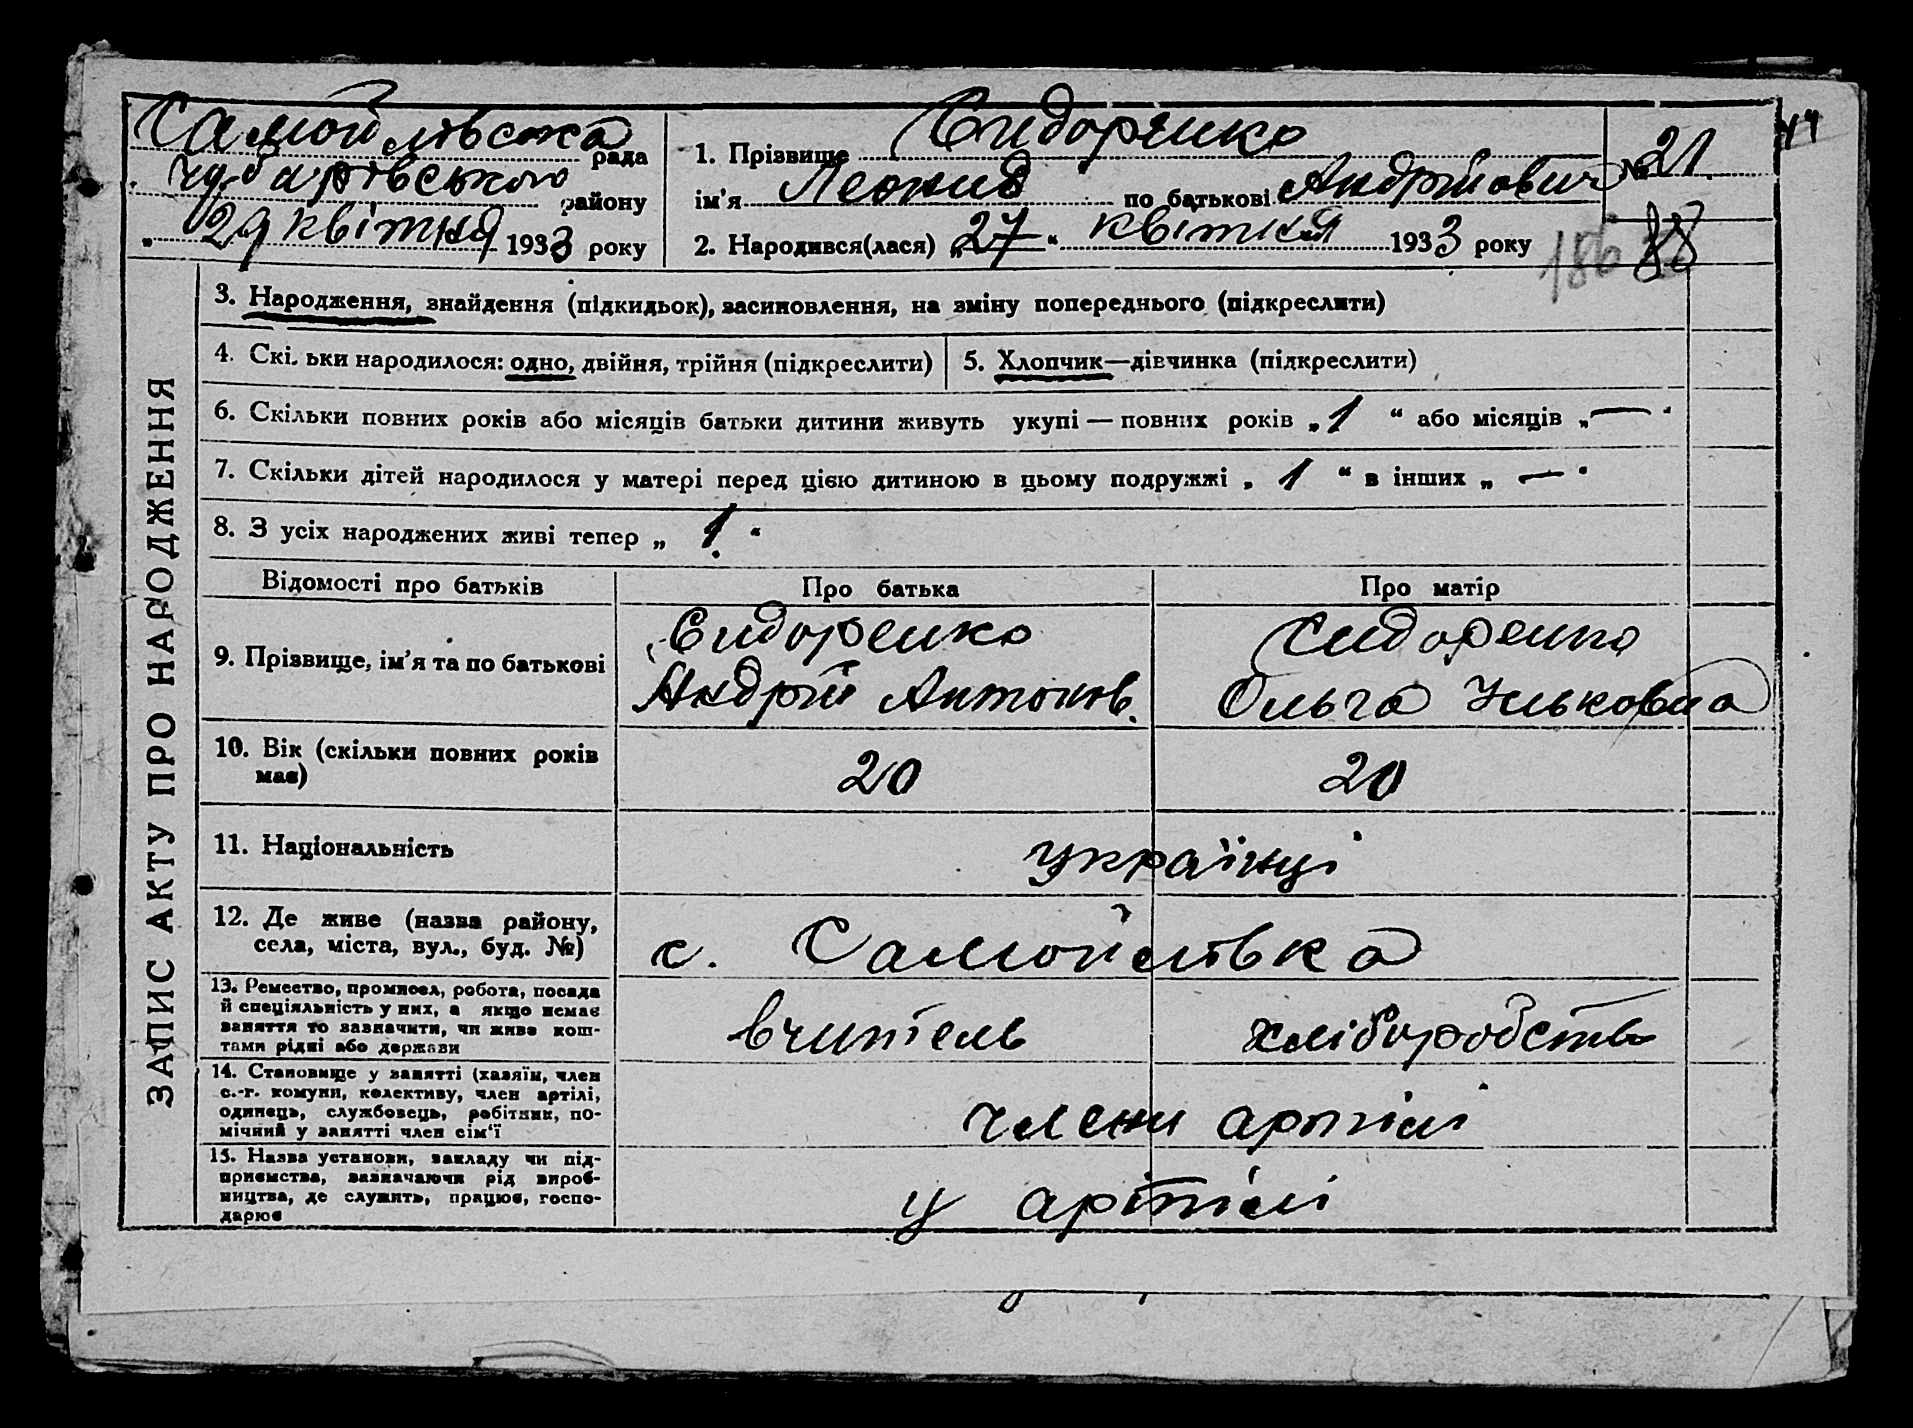 Самойлівська рада
Чубарівського району
„ 29 квітня 1933 року
1. Прізвище Сидоренко
ім'я Леонид по батькові Андрійович
2. Народився(лася) „27“ квітня 1933 року
№ 21.
44
186
88
ЗАПИС АКТУ ПРО НАРОДЖЕННЯ
3. Народження, знайдення (підкидьок), засиновлення, на зміну попереднього (підкреслити)
4. Скільки народилося: одно, двійня, трійня (підкреслити)
5. Хлопчик—дівчинка (підкреслити)
6. Скільки повних років або місяців батьки дитини живуть укупі — повних років „ 1 “ або місяців „ — “
7. Скільки дітей народилося у матері перед цією дитиною в цьому подружжі „ 1 “ в інших „ — “
8. З усіх народжених живі тепер „ 1 “
Відомості про батьків Про батька Про матір
9. Прізвище, ім'я та по батькові
Сидоренко
Андрій Антонів.
Сидоренко
Ольга Ільковна
10. Вік (скільки повних років
має)
20 20
11. Національність українці
12. Де живе (назва району,
села, міста, вул., буд. №)
с. Самойлівка
13. Ремество, промисел, робота, посада
й спеціяльність у них, а якщо немає
заняття то зазначити, чи живе кош-
тами рідні або держави
вчитель хліборобство
14. Становище у занятті (хазяїн, член
с.-г. комуни, колективу, член артілі,
одинець, службовець, робітник, по-
мічний у занятті член сім'ї
члени артілі
15. Назва установи, закладу чи під-
приємства, зазначаючи рід вироб-
ництва, де служить, працює, госпо-
дарює
у артілі